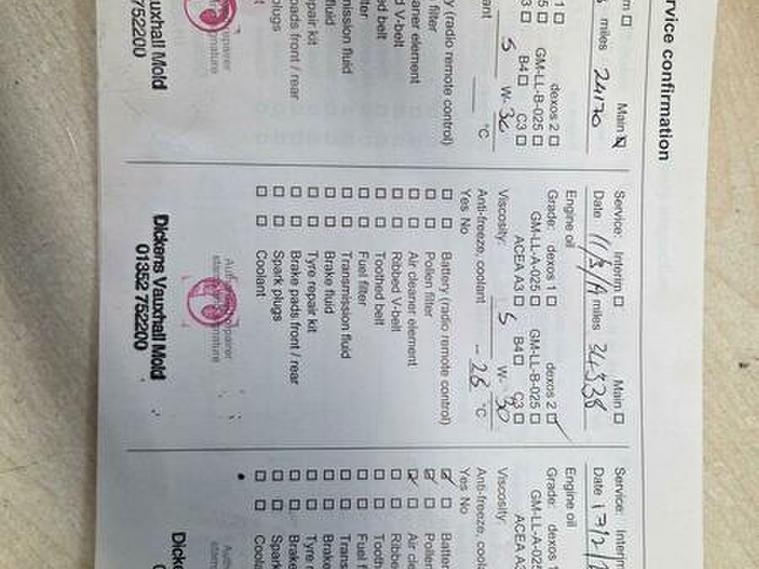 rvice confirmation
m □ Main ☒
miles 24170
1 □ dexos 2 □
5 □ GM-LL-B-025 □
3 □ B4 □ C3 □
5 W- 30
ant °C
y (radio remote control)
filter
aner element
d V-belt
ed belt
lter
mission fluid
fluid
epair kit
pads front / rear
plugs
t
epairer
nature
uxhall Mold
752200
Service: Interim □ Main □
Date 11/3/19 miles 34538
Engine oil
Grade: dexos 1 □ dexos 2 ☑
GM-LL-A-025 □ GM-LL-B-025 □
ACEA A3 □ B4 □ C3 □
Viscosity: 5 W- 30
Anti-freeze, coolant - 26 °C
Yes No
□ □ Battery (radio remote control)
□ □ Pollen filter
□ □ Air cleaner element
□ □ Ribbed V-belt
□ □ Toothed belt
□ □ Fuel filter
□ □ Transmission fluid
□ □ Brake fluid
□ □ Tyre repair kit
□ □ Brake pads front / rear
□ □ Spark plugs
□ □ Coolant
epairer
nature
Dickens Vauxhall Mold
01352 752200
Service: Interim
Date 13/2/
Engine oil
Grade: dexos 1
GM-LL-A-025
ACEA A3
Viscosity
Anti-freeze, coola
Yes No
☑ □ Batter
☑ □ Pollen
☑ □ Air cle
□ □ Ribbe
□ □ Tooth
□ □ Fuel f
□ □ Trans
□ □ Brake
□ □ Tyre r
□ □ Brake
□ □ Spark
□ □ Coola
Auth
Dicke